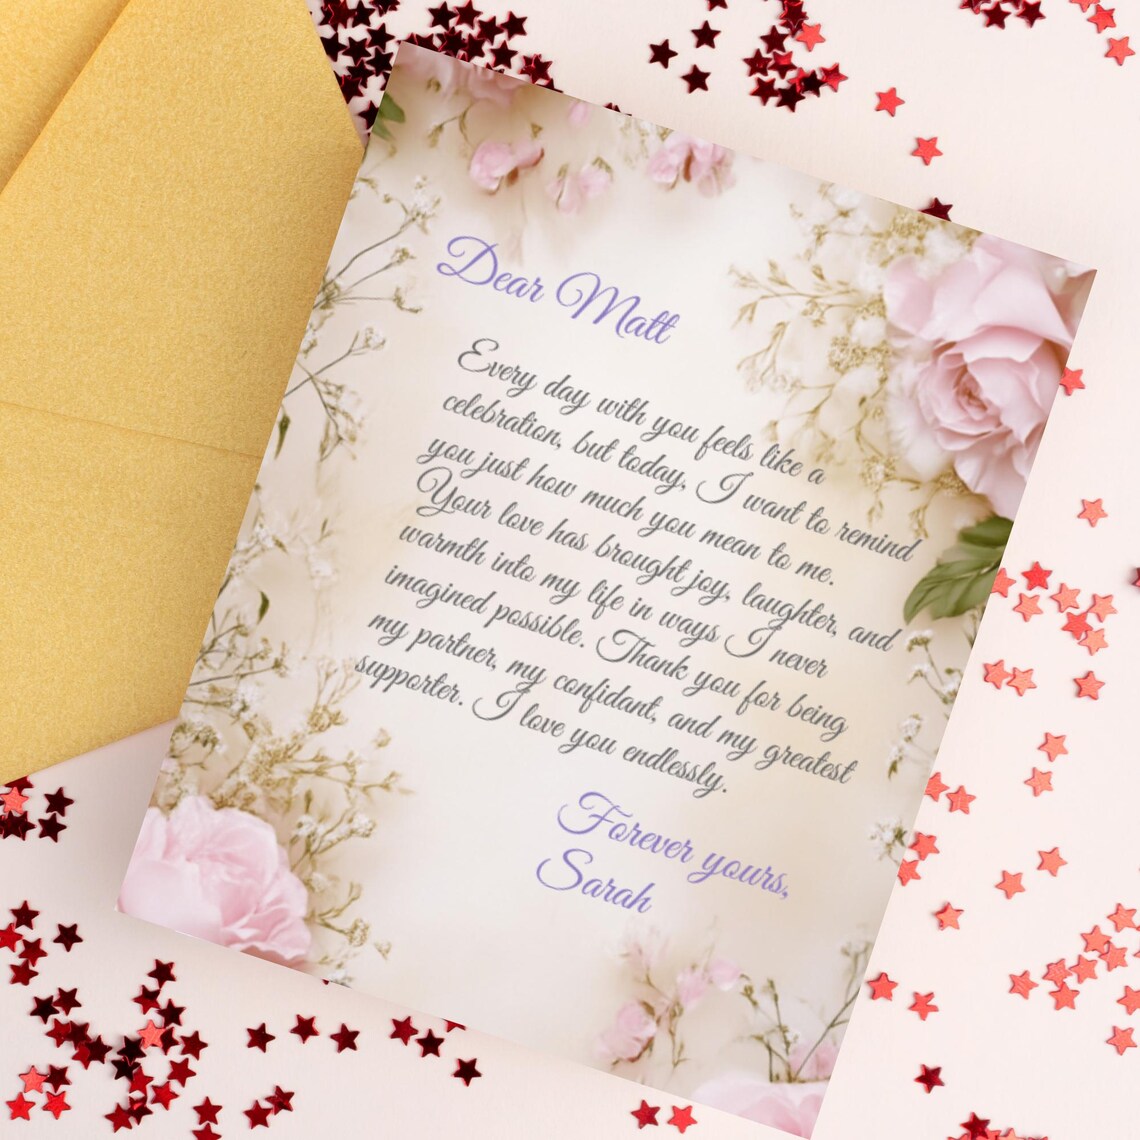 Dear Matt
Every day with you feels like a
celebration, but today, I want to remind
you just how much you mean to me.
Your love has brought joy, laughter, and
warmth into my life in ways I never
imagined possible. Thank you for being
my partner, my confidant, and my greatest
supporter. I love you endlessly.
Forever yours,
Sarah